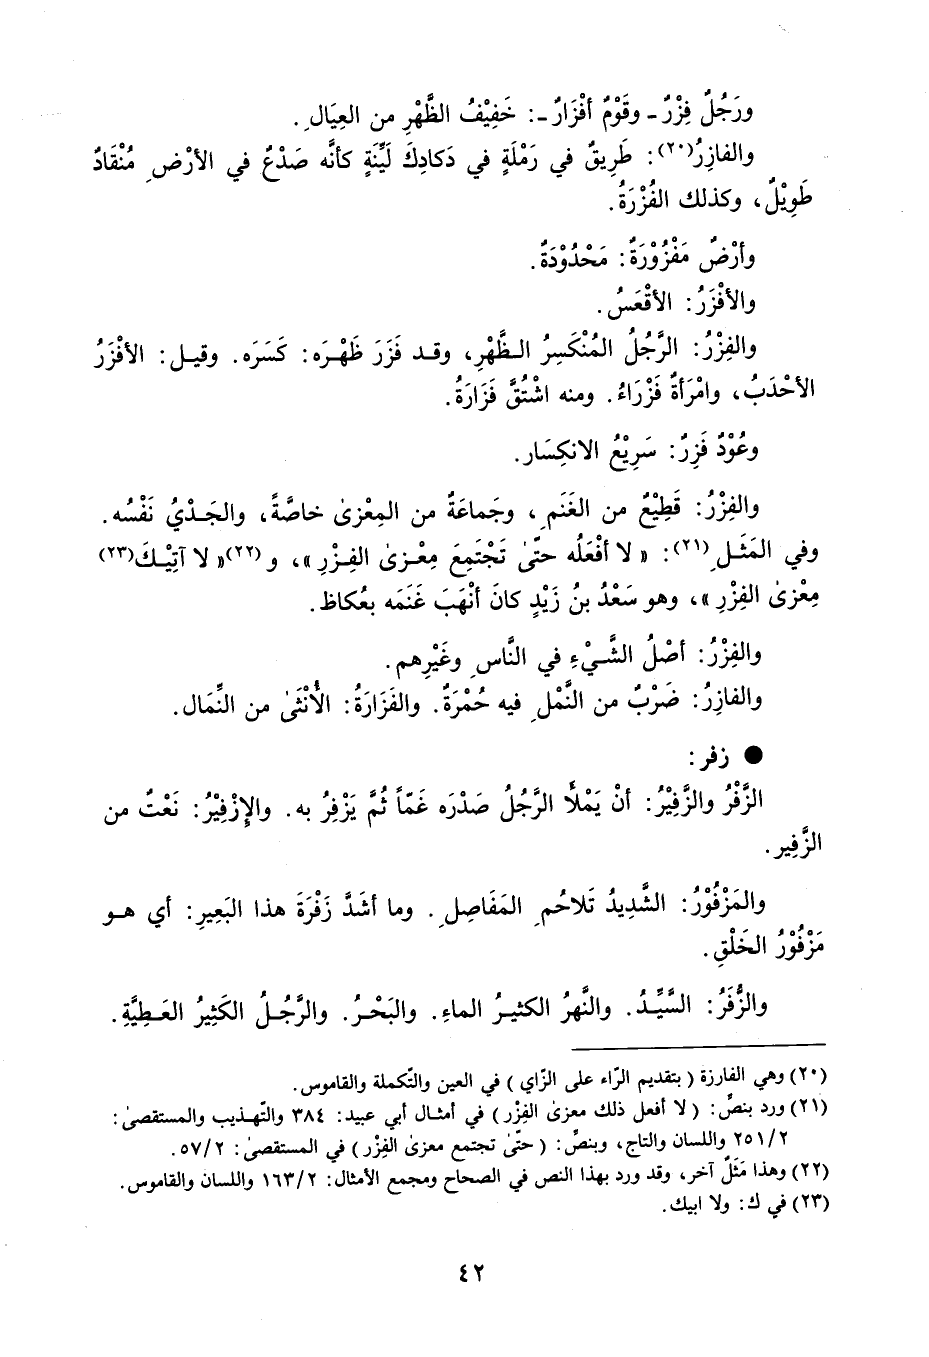 ورَجُلٌ فِزْرٌ ـ وقَوْمٌ أفْزَارٌ ـ: خَفِيْفُ الظَّهْرِ من العِيَالِ.
والفازِرُ(٢٠): طَرِيقٌ في رَمْلَةٍ في دَكادِكَ لَيِّنَةٍ كأنَّه صَدْعٌ في الأرْضِ مُنْقَادٌ
طَوِيْلٌ، وكذلك الفُزْرَةُ.
وأرْضٌ مَفْزُوْرَةٌ: مَحْدُوْدَةٌ.
والأفْزَرُ: الأقْعَسُ.
والفِزْرُ: الرَّجُلُ المُنْكَسِرُ الظَّهْرِ، وقد فَزَرَ ظَهْرَه: كَسَرَه. وقيل: الأفْزَرُ
الأحْدَبُ، وامْرَأةٌ فَزْرَاءُ. ومنه اشْتُقَّ فَزَارَةُ.
وعُوْدٌ فَزِرٌ: سَرِيْعُ الانكِسَار.
والفِزْرُ: قَطِيْعٌ من الغَنَمِ، وجَماعَةٌ من المِعْزىٰ خاصَّةً، والجَدْيُ نَفْسُه.
وفي المَثَلِ(٢١): « لا أفْعَلُه حتّىٰ تَجْتَمِعَ مِعْزىٰ الفِزْرِ »، و (٢٢)« لا آتِيْكَ(٢٣)
مِعْزىٰ الفِزْرِ »، وهو سَعْدُ بنُ زَيْدٍ كانَ أنْهَبَ غَنَمَه بعُكاظ.
والفِزْرُ: أصْلُ الشَّيْءِ في النَّاسِ وغَيْرِهم.
والفازِرُ: ضَرْبٌ من النَّمْلِ فيه حُمْرَةٌ. والفَزَارَةُ: الأُنْثىٰ من النِّمَال.
● زفر:
الزَّفْرُ والزَّفِيْرُ: أنْ يَمْلأَ الرَّجُلُ صَدْرَه غَمّاً ثُمَّ يَزْفِرُ به. والإِزْفِيْرُ: نَعْتٌ من
الزَّفِير.
والمَزْفُوْرُ: الشَّدِيدُ تَلاحُمِ المَفَاصِلِ. وما أشَدَّ زَفْرَةَ هذا البَعِيرِ: أي هو
مَزْفُوْرُ الخَلْقِ.
والزُّفَرُ: السَّيِّدُ. والنَّهرُ الكثيرُ الماءِ. والبَحْرُ. والرَّجُلُ الكَثِيرُ العَطِيَّةِ.
(٢٠) وهي الفارزة ( بتقديم الرّاء على الزّاي ) في العين والتّكملة والقاموس.
(٢١) ورد بنصِّ: ( لا أفعل ذلك معزىٰ الفِزْر ) في أمثال أبي عبيد: ٣٨٤ والتّهذيب والمستقصىٰ:
٢٥١/٢ واللسان والتاج، وبنصِّ: ( حتّىٰ تجتمع معزىٰ الفِزْر ) في المستقصىٰ: ٥٧/٢.
(٢٢) وهذا مَثَلٌ آخر، وقد ورد بهذا النص في الصحاح ومجمع الأمثال: ١٦٣/٢ واللسان والقاموس.
(٢٣) في ك: ولا ابيك.
٤٢